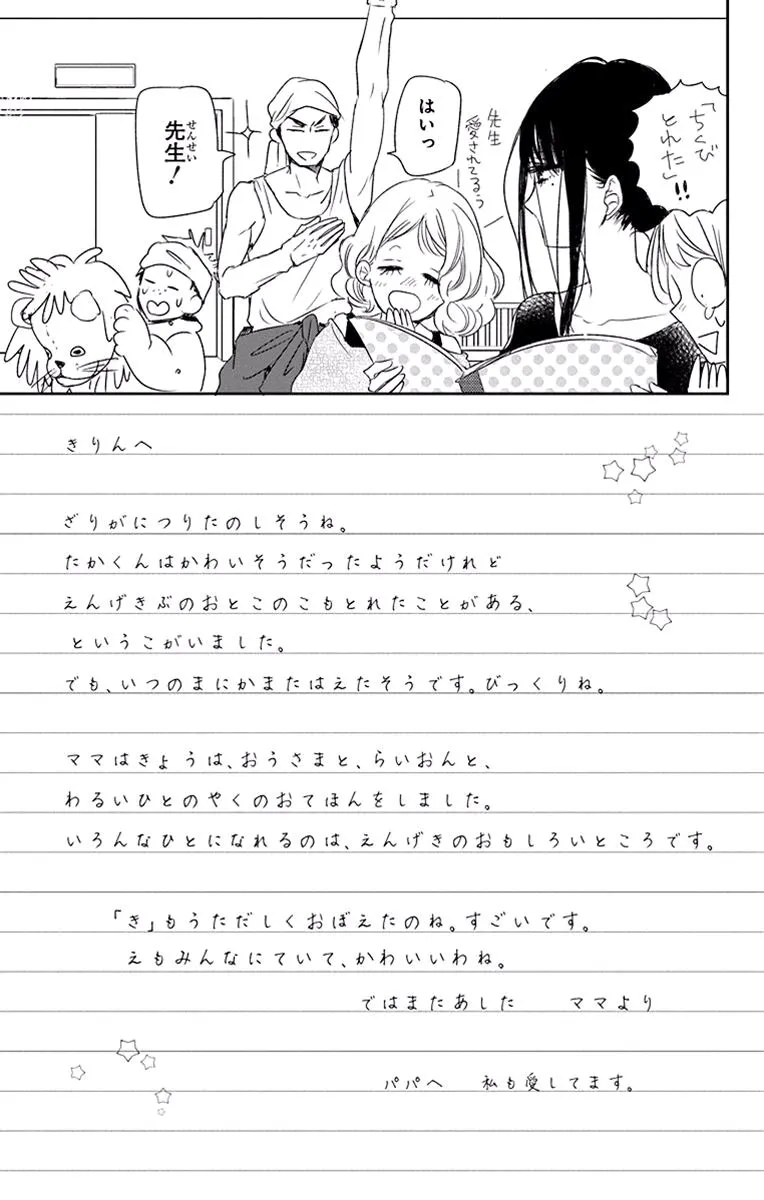 「ちくび
とれた」!!
先生
愛されてるぅ
はいっ
せんせい
先生!
きりんへ
ざりがにつりたのしそうね。
たかくんはかわいそうだったようだけれど
えんげきぶのおとこのこもとれたことがある、
というこがいました。
でも、いつのまにかまたはえたそうです。びっくりね。
ママはきょうは、おうさまと、らいおんと、
わるいひとのやくのおてほんをしました。
いろんなひとになれるのは、えんげきのおもしろいところです。
「き」もうただしくおぼえたのね。すごいです。
えもみんなにていて、かわいいわね。
ではまたあした ママより
パパへ 私も愛してます。